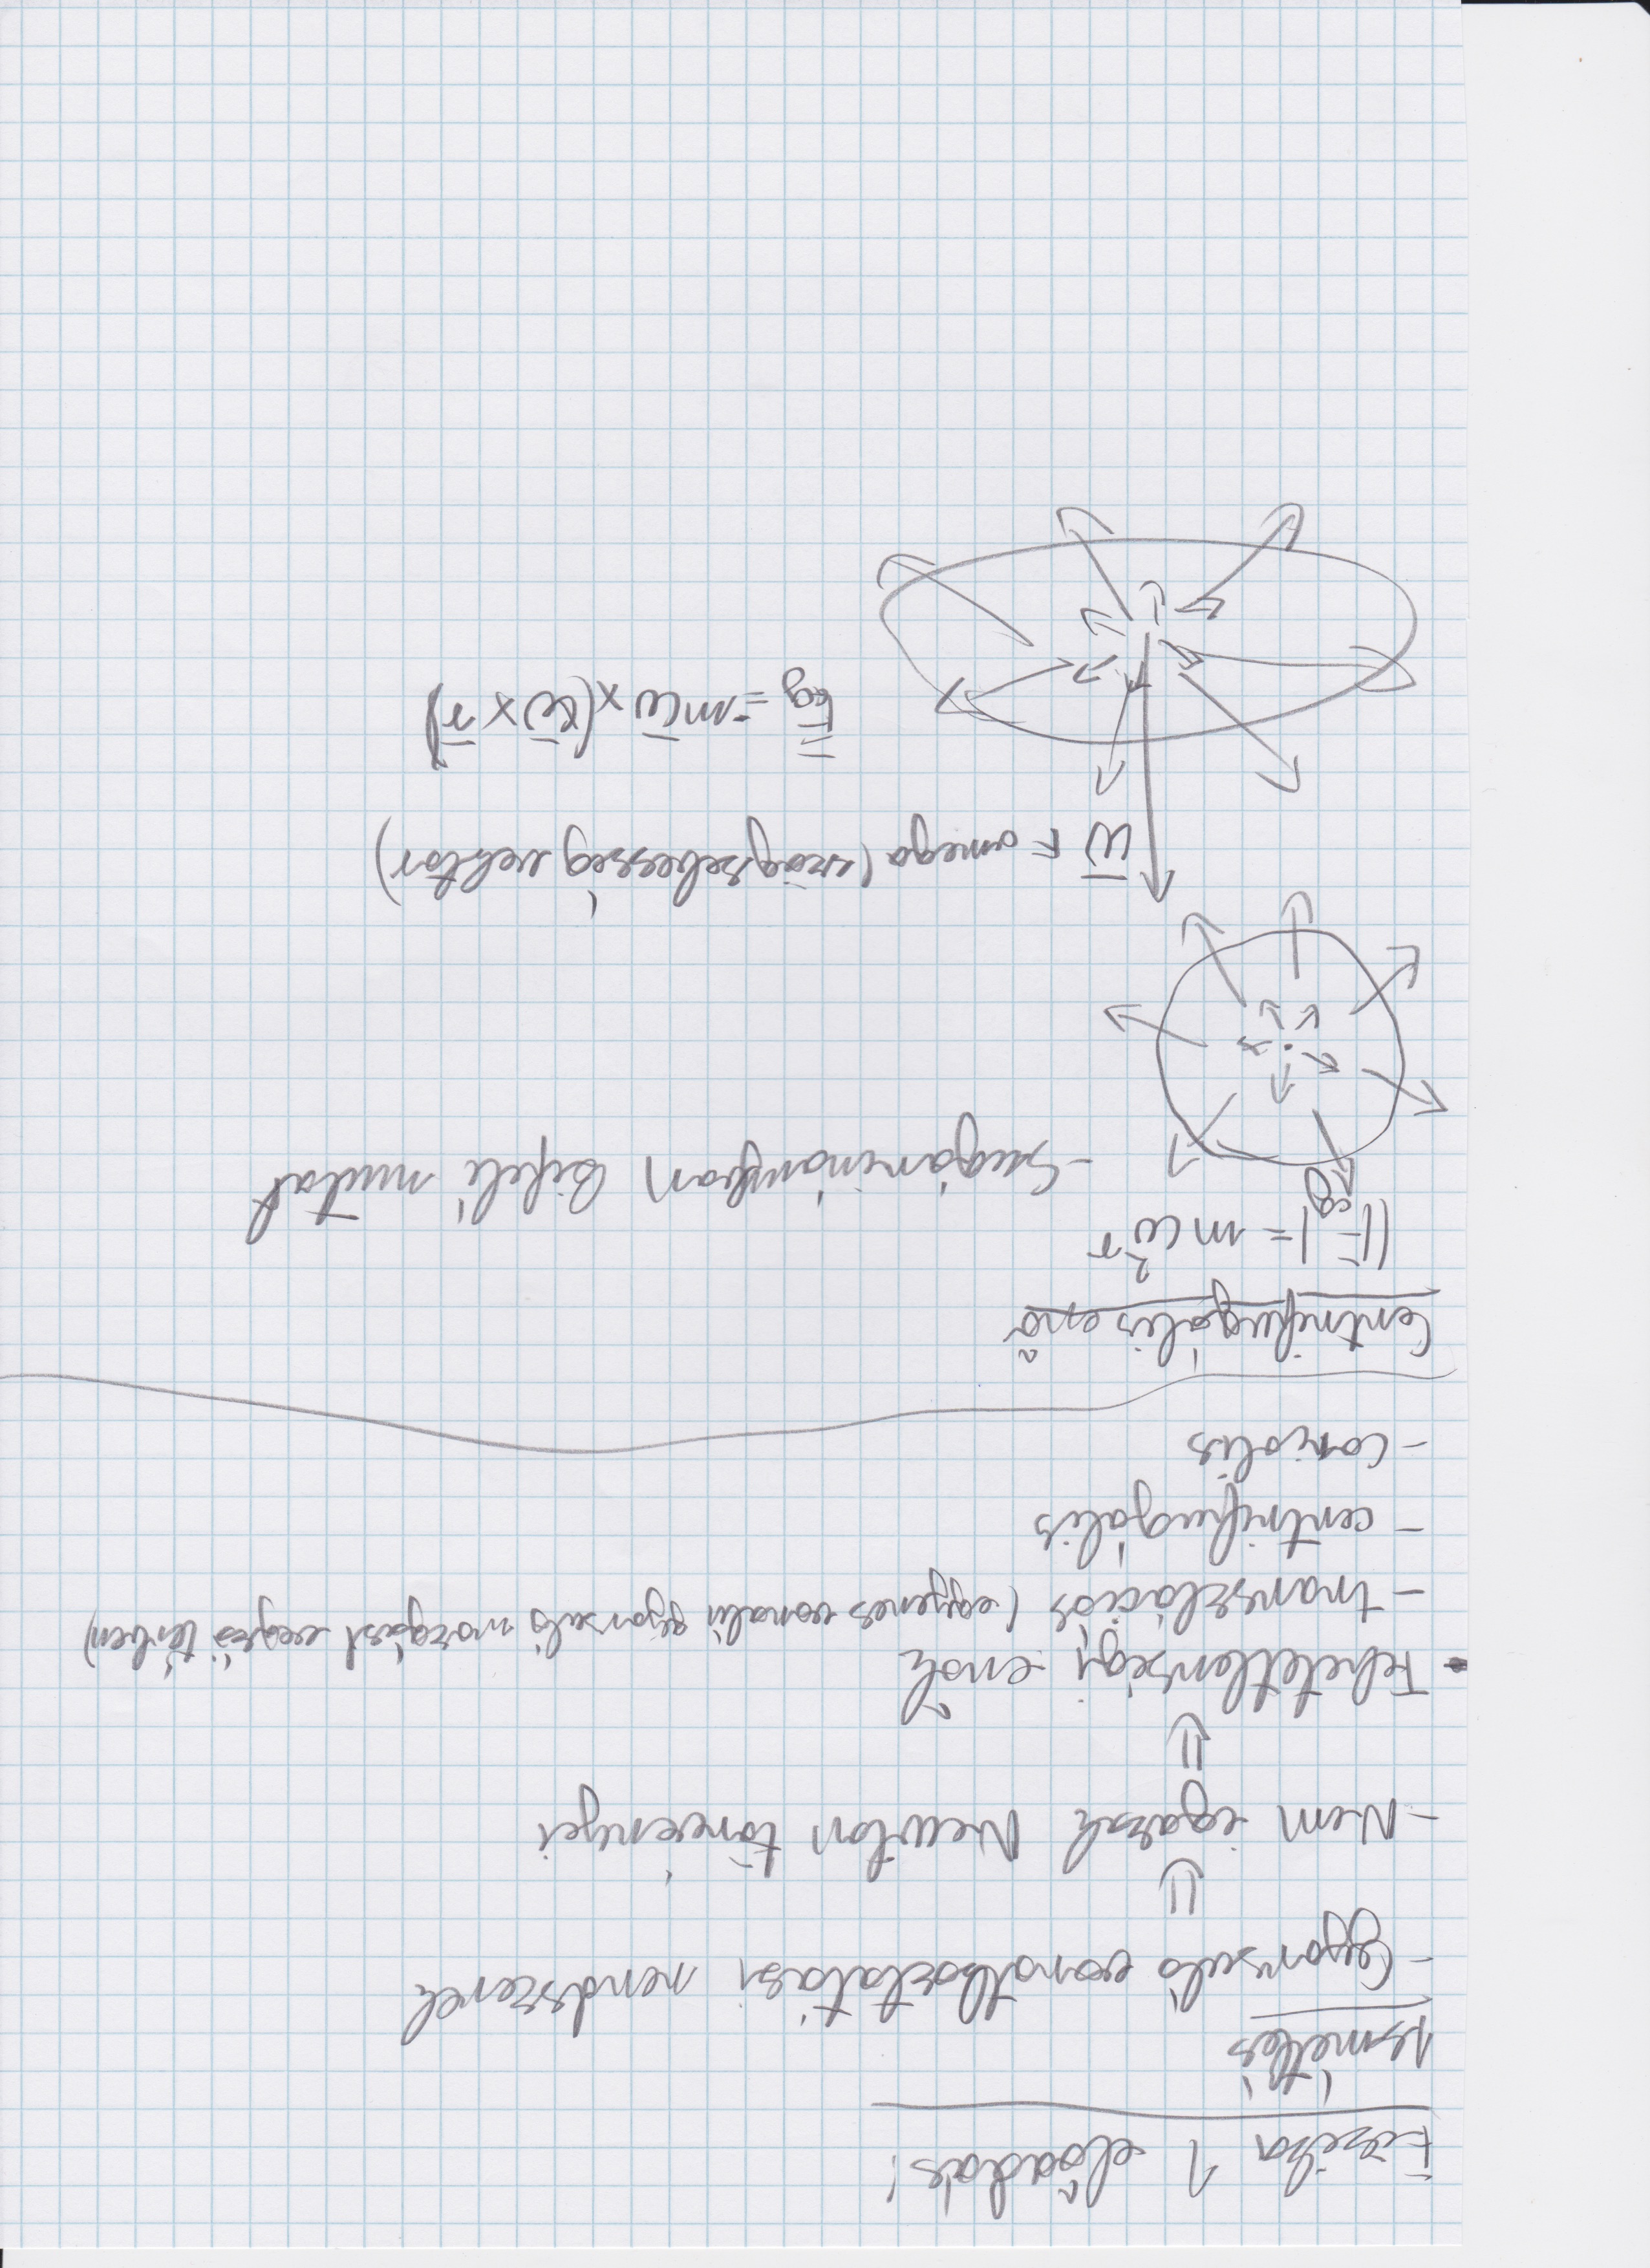 Fizika 1 előadás!
Ismétlés
- Gyorsuló vonatkoztatási rendszerek
⇓
- Nem igazak Newton törvényei
⇓
• Tehetetlenségi erők
- transzlációs (egyenes vonalú gyorsuló mozgást végző térben)
- centrifugális
- Coriolis
Centrifugális erő
|F̄cg| = mω²r
- Sugárirányban kifelé mutat
ω̄ = omega (szögsebesség vektor)
F̄cg = -mω̄×(ω̄×r̄)